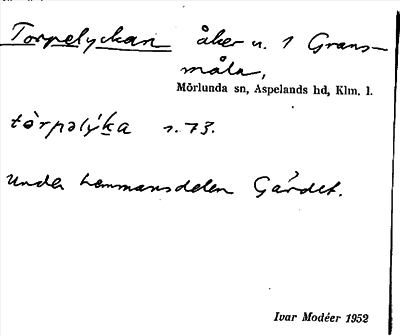 Torpelyckan åker u. 1 Grans-
måla,
Mörlunda sn, Aspelands hd, Klm. l.
tòrpəlýka s. 73.
Under hemmansdelen Gärdet.
Ivar Modéer 1952